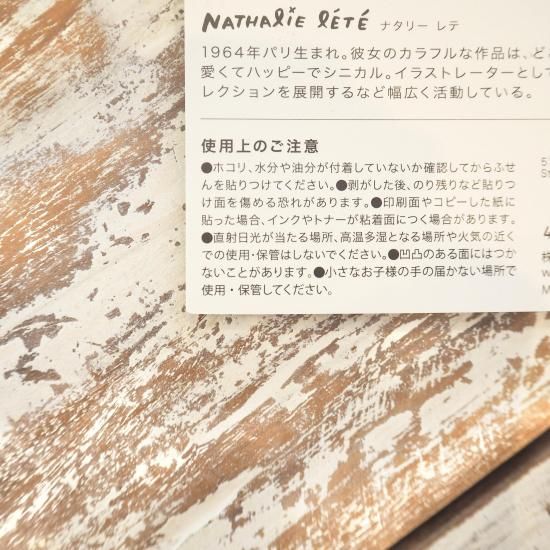 NATHALIE LÉTÉ ナタリー レテ
1964年パリ生まれ。彼女のカラフルな作品は、ど
愛くてハッピーでシニカル。イラストレーターとして
レクションを展開するなど幅広く活動している。
使用上のご注意
●ホコリ、水分や油分が付着していないか確認してからふせ
んを貼りつけてください。●剥がした後、のり残りなど貼りつ
け面を傷める恐れがあります。●印刷面やコピーした紙に
貼った場合、インクやトナーが粘着面につく場合があります。
●直射日光が当たる場所、高温多湿となる場所や火気の近く
での使用・保管はしないでください。●凹凸のある面にはつか
ないことがあります。●小さなお子様の手の届かない場所で
使用・保管してください。